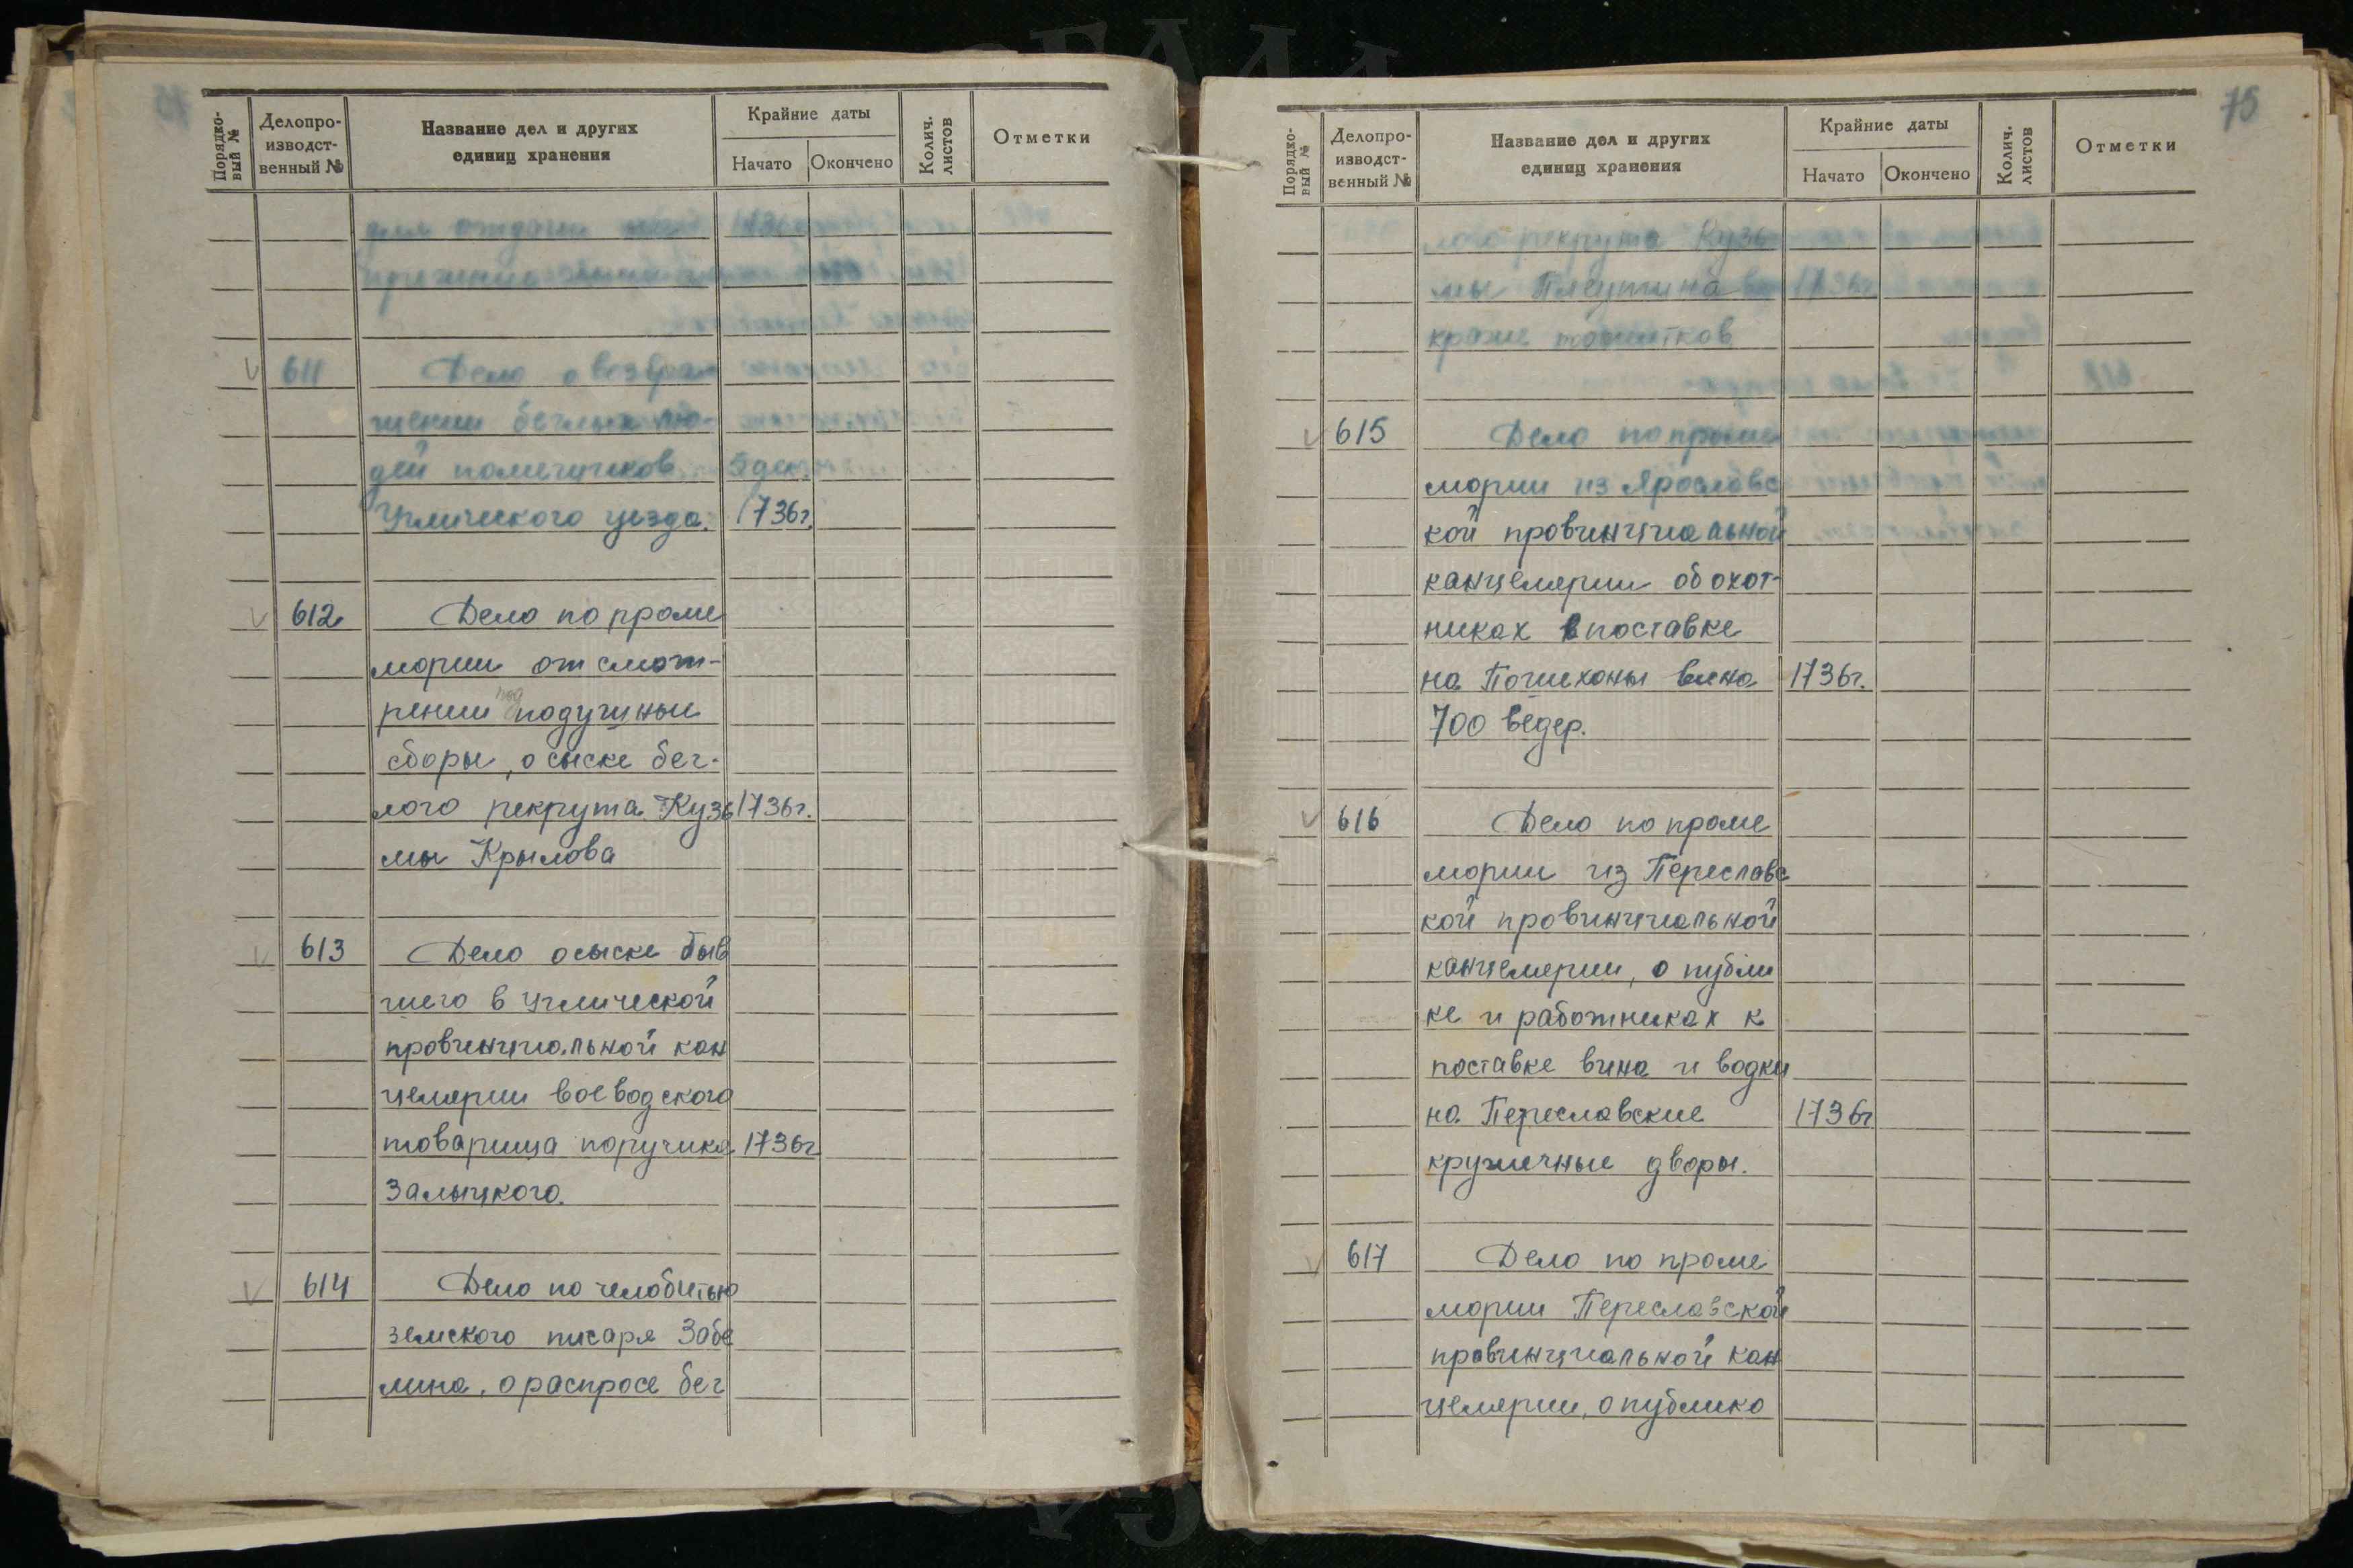 Порядко-
вый №
Делопро-
изводст-
венный №
Название дел и других
единиц хранения
Крайние даты
Начато
Окончено
Колич.
листов
Отметки
для отдачи
611 Дело о возвра
щении беглых лю-
дей помещиков 5 дек.
Углического уезда. 1736г.
612 Дело по проме
мории от смот-
рении под подушныи
сборы, о сыске бег-
лого рекрута Кузь 1736г.
мы Крылова
613 Дело о сыске быв
шего в Углической
провинциальной кан
целярии воеводского
товарища поручика 1736г
Залыцкого.
614 Дело по челобитью
земского писаря Забе
лина, о распросе бег
75
Порядко-
вый №
Делопро-
изводст-
венный №
Название дел и других
единиц хранения
Крайние даты
Начато
Окончено
Колич.
листов
Отметки
лого рекрута Кузь
мы Плеутина в 1736г.
краже пожитков
615 Дело по проме
мории из Ярославс
кой провинциальной
канцелярии об охот-
никах в поставке
на Пошехоны вина 1736г.
700 ведер.
616 Дело по проме
мории из Переславс
кой провинциальной
канцелярии, о публи
ке и работниках к
поставке вина и водки
на Переславские 1736г
кружечные дворы.
617 Дело по проме
мории Переславской
провинциальной кан
целярии, о публико